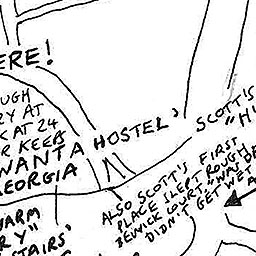 ERE!
UGH
RY AT
K AT 24
R KEEB
WANTA
EORGIA
HOSTEL'
SCOTT'S
"H
ALSO SCOTT'S FIRST
PLACE SLEPT ROUGH
BEWICK COURT.
DIDN'T GET WET
A
WARM
RY"
STAIRS'